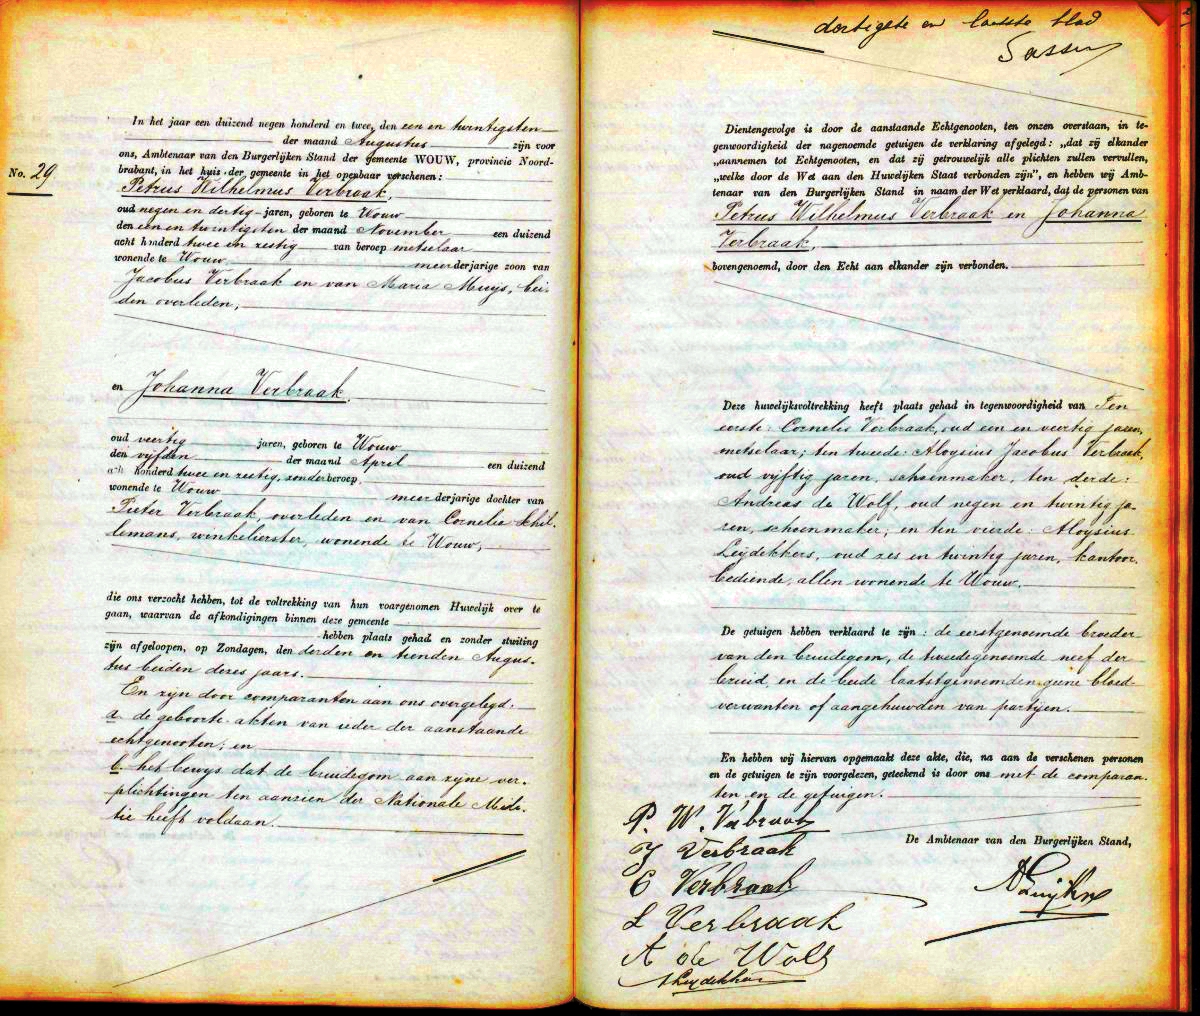 No. 29
In het jaar een duizend negen honderd en twee, den een en twintigsten
der maand Augustus zijn voor
ons, Ambtenaar van den Burgerlijken Stand der gemeente WOUW, provincie Noord-
brabant, in het huis der gemeente in het openbaar verschenen:
Petrus Wilhelmus Verbraak,
oud negen en dertig jaren, geboren te Wouw
den een en twintigsten der maand November een duizend
acht honderd twee en zestig van beroep metselaar
wonende te Wouw meerderjarige zoon van
Jacobus Verbraak en van Maria Muys, bei-
den overleden,
en Johanna Verbraak,
oud veertig jaren, geboren te Wouw
den vijfden der maand April een duizend
acht honderd twee en zestig, zonder beroep,
wonende te Wouw meerderjarige dochter van
Pieter Verbraak, overleden en van Cornelia Schil-
lemans, winkelierster, wonende te Wouw,
die ons verzocht hebben, tot de voltrekking van hun voorgenomen Huwelijk over te
gaan, waarvan de afkondigingen binnen deze gemeente
hebben plaats gehad en zonder stuiting
zijn afgeloopen, op Zondagen, den derden en tienden Augus-
tus beiden dezes jaars.
En zijn door comparanten aan ons overgelegd:
a. de geboorte-akten van ieder der aanstaande
echtgenooten; en
b. het bewijs dat de bruidegom aan zijne ver-
plichtingen ten aanzien der Nationale Mili-
tie heeft voldaan.
dertigste en laatste blad
Sassen
Dientengevolge is door de aanstaande Echtgenooten, ten onzen overstaan, in te-
genwoordigheid der nagenoemde getuigen de verklaring afgelegd: „dat zij elkander
„aannemen tot Echtgenooten, en dat zij getrouwelijk alle plichten zullen vervullen,
„welke door de Wet aan den Huwelijken Staat verbonden zijn”, en hebben wij Amb-
tenaar van den Burgerlijken Stand in naam der Wet verklaard, dat de personen van
Petrus Wilhelmus Verbraak en Johanna
Verbraak,
bovengenoemd, door den Echt aan elkander zijn verbonden.
Deze huwelijksvoltrekking heeft plaats gehad in tegenwoordigheid van Ten
eerste: Cornelis Verbraak, oud een en veertig jaren,
metselaar; ten tweede: Aloysius Jacobus Verbraak,
oud vijftig jaren, schoenmaker, ten derde:
Andreas de Wolf, oud negen en twintig ja-
ren, schoenmaker; en ten vierde: Aloysius
Leijdekkers, oud zes en twintig jaren, kantoor
bediende, allen wonende te Wouw.
De getuigen hebben verklaard te zijn: de eerstgenoemde broeder
van den bruidegom, de tweedegenoemde neef der
bruid, en de beide laatstgenoemden geene bloed-
verwanten of aangehuwden van partijen.
En hebben wij hiervan opgemaakt deze akte, die, na aan de verschenen personen
en de getuigen te zijn voorgelezen, geteekend is door ons met de comparan-
ten en de getuigen.
P. W. Verbraak
De Ambtenaar van den Burgerlijken Stand,
J Verbraak
C Verbraak
L Verbraak
A de Wolf
A Leydekkers